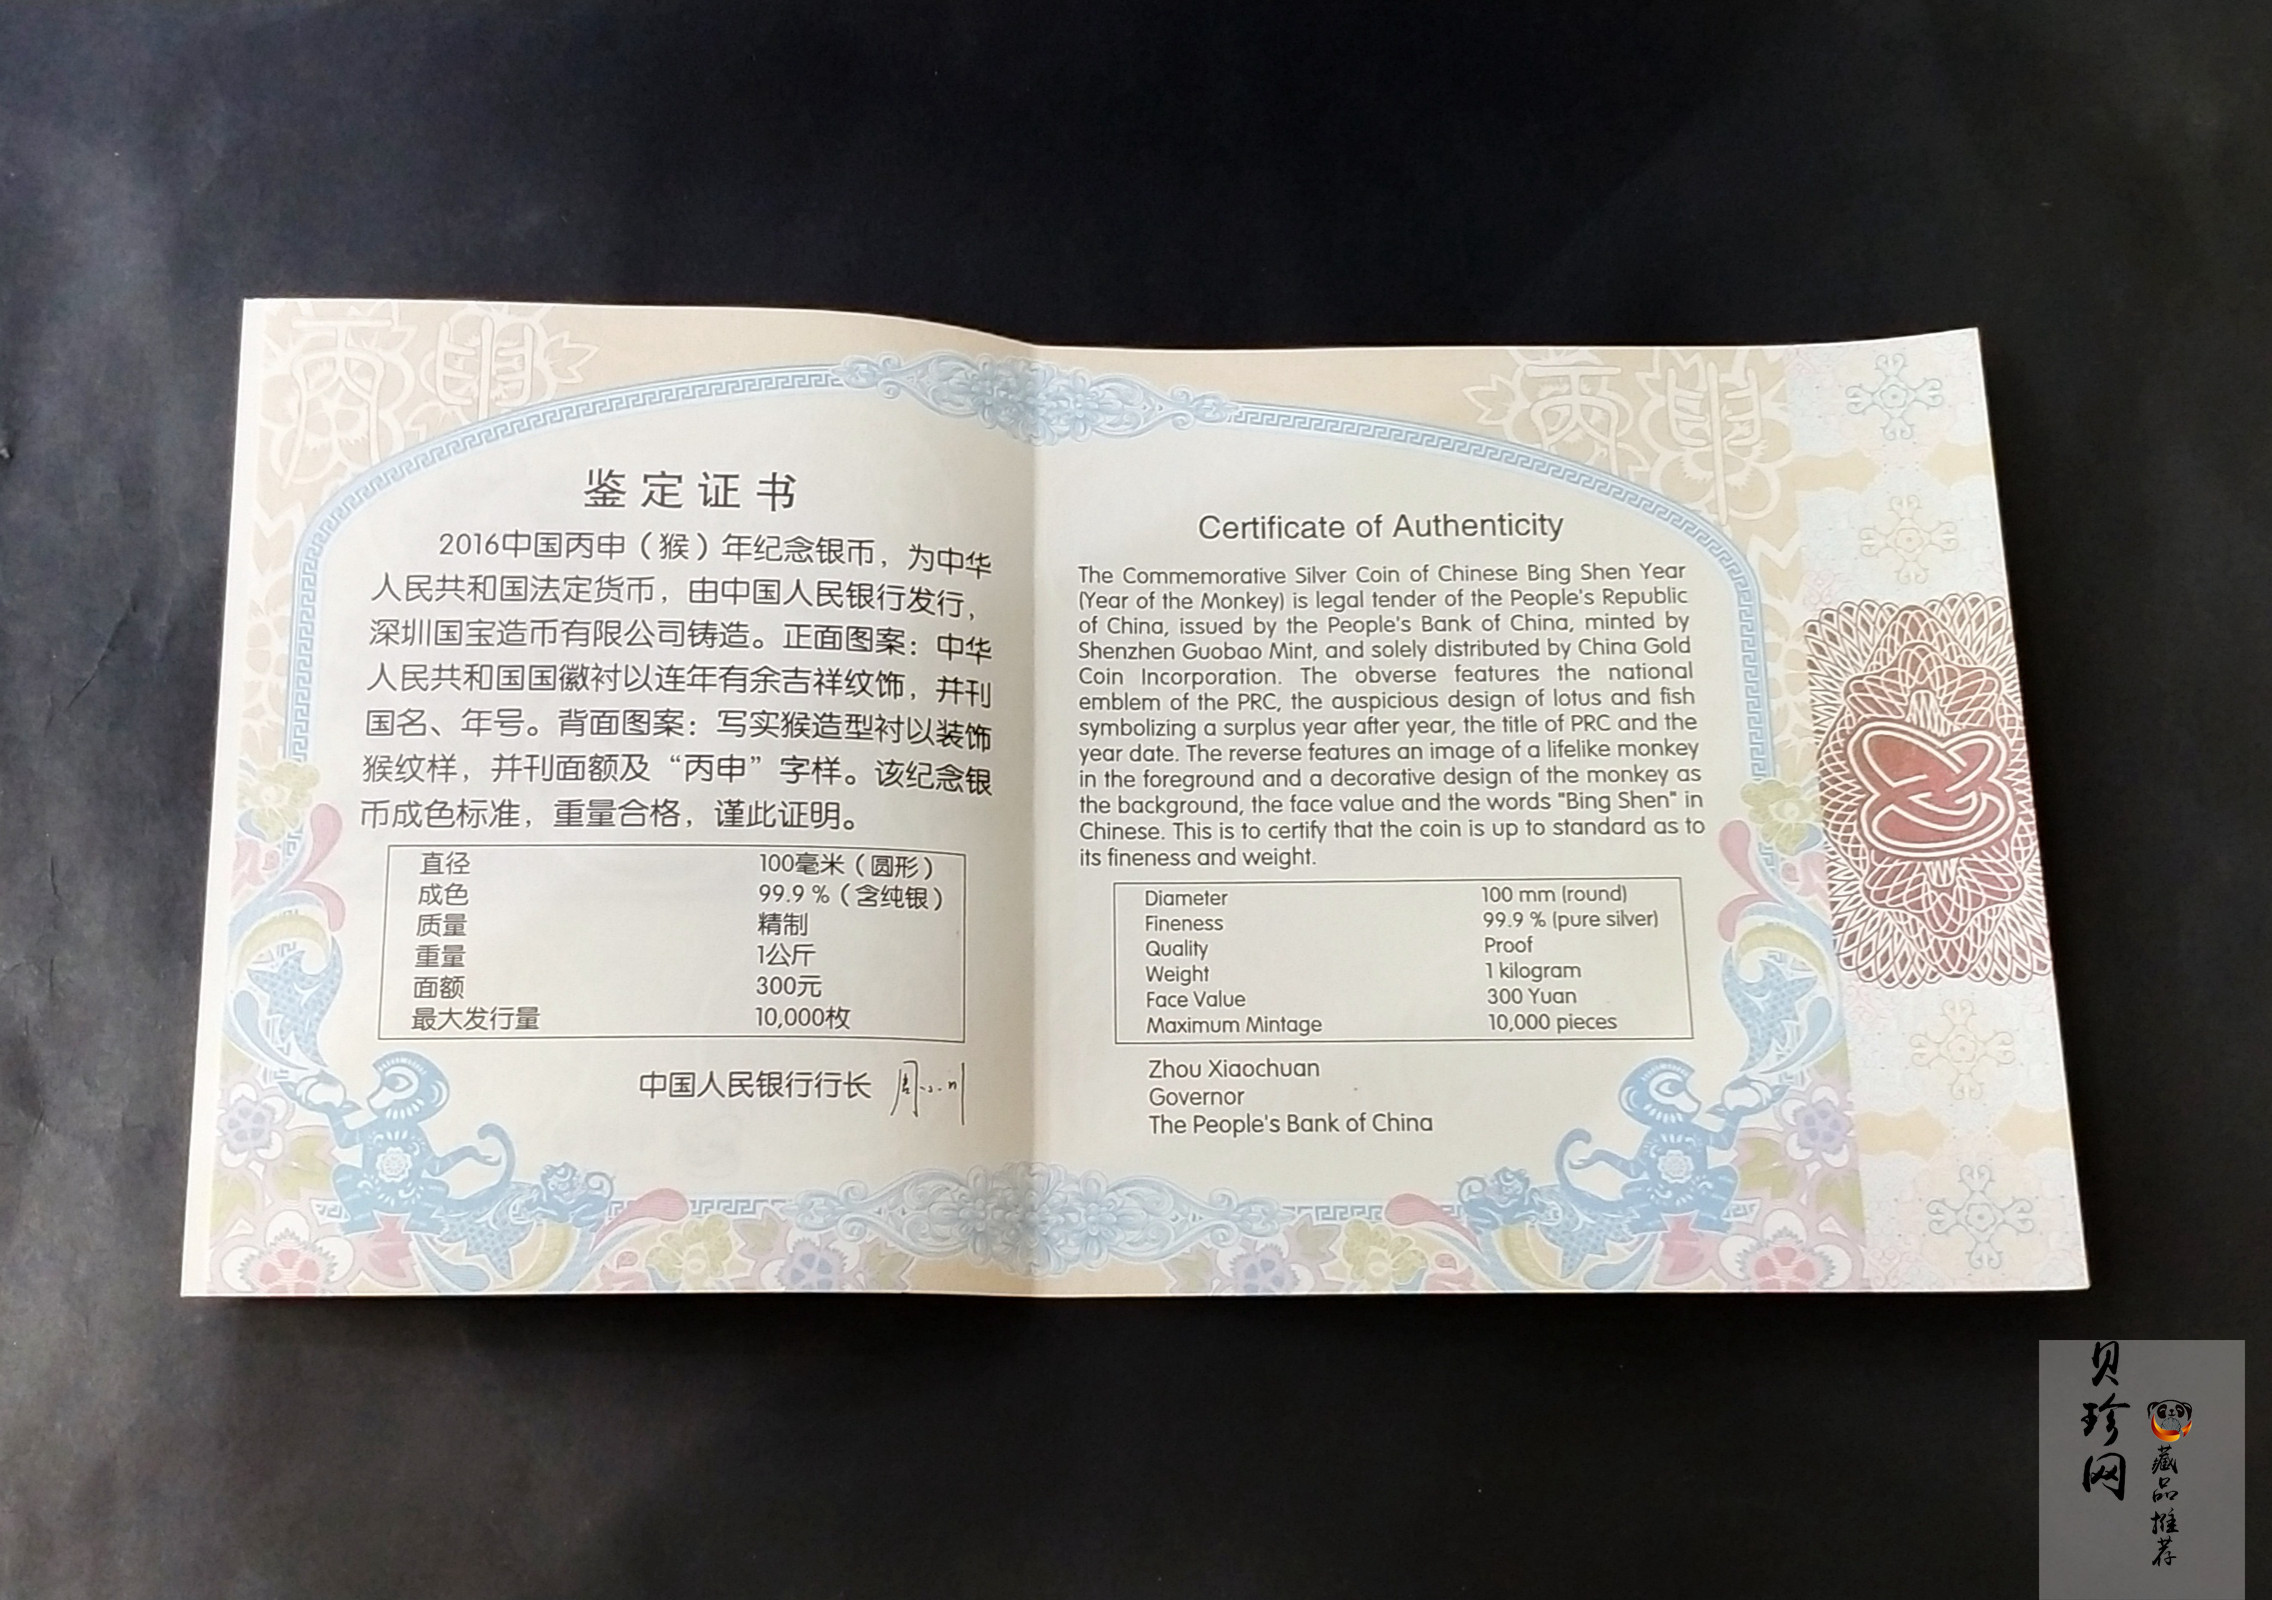 鉴定证书
2016中国丙申（猴）年纪念银币，为中华
人民共和国法定货币，由中国人民银行发行，
深圳国宝造币有限公司铸造。正面图案：中华
人民共和国国徽衬以连年有余吉祥纹饰，并刊
国名、年号。背面图案：写实猴造型衬以装饰
猴纹样，并刊面额及“丙申”字样。该纪念银
币成色标准，重量合格，谨此证明。
直径 100毫米（圆形）
成色 99.9 %（含纯银）
质量 精制
重量 1公斤
面额 300元
最大发行量 10,000枚
中国人民银行行长 周小川
Certificate of Authenticity
The Commemorative Silver Coin of Chinese Bing Shen Year
(Year of the Monkey) is legal tender of the People's Republic
of China, issued by the People's Bank of China, minted by
Shenzhen Guobao Mint, and solely distributed by China Gold
Coin Incorporation. The obverse features the national
emblem of the PRC, the auspicious design of lotus and fish
symbolizing a surplus year after year, the title of PRC and the
year date. The reverse features an image of a lifelike monkey
in the foreground and a decorative design of the monkey as
the background, the face value and the words "Bing Shen" in
Chinese. This is to certify that the coin is up to standard as to
its fineness and weight.
Diameter 100 mm (round)
Fineness 99.9 % (pure silver)
Quality Proof
Weight 1 kilogram
Face Value 300 Yuan
Maximum Mintage 10,000 pieces
Zhou Xiaochuan
Governor
The People's Bank of China
丙申
丙申
贝珍网
藏品推荐